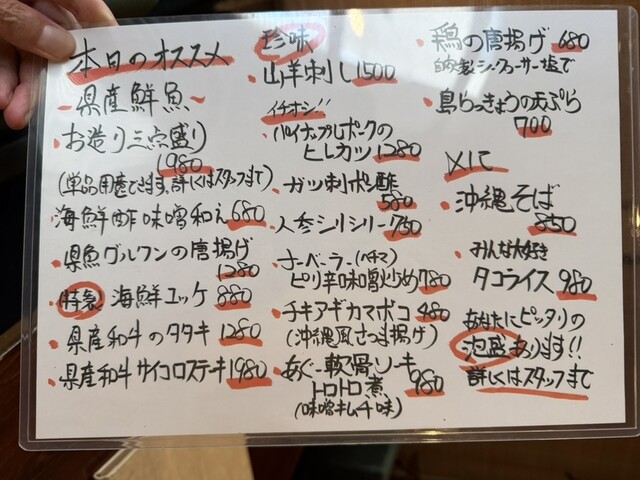 本日のオススメ
〜県産鮮魚〜
・お造り三点盛り
1980
(単品用意できます。詳しくはスタッフまで)
・海鮮酢味噌和え 680
・県魚グルクンの唐揚げ
1280
・特製 海鮮ユッケ 880
・県産和牛のタタキ 1280
・県産和牛サイコロステーキ 1980
珍味
・山羊刺し 1500
イチオシ!!
・パイナップルポークの
ヒレカツ 1280
・ガツ刺ポン酢
580
・人参シリシリー 730
・ナーベーラー(ヘチマ)
ピリ辛味噌炒め 780
・チキアギカマボコ 480
(沖縄風さつま揚げ)
・あぐー軟骨ソーキ
トロトロ煮 980
(味噌キムチ味)
・鶏の唐揚げ 680
自家製シークヮーサー塩で
・島らっきょうの天ぷら
700
〆に
・沖縄そば
850
・みんな大好き
タコライス 980
あなたにピッタリの
泡盛あります!!
詳しくはスタッフまで